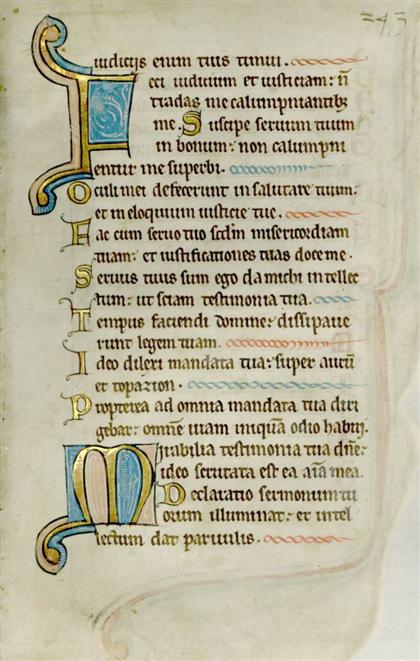 243
iudicijs enim tuis timui.
Feci iudicium et iusticiam: n̄
tradas me calumpniantibꝫ
me. Suscipe seruum tuum
in bonum: non calumpni
entur me superbi.
Oculi mei defecerunt in salutare tuum:
et in eloquium iusticie tue.
Fac cum seruo tuo scd̄m misericordiam
tuam: et iustificationes tuas doce me.
Seruus tuus sum ego da michi intellec
tum: ut sciam testimonia tua.
Tempus faciendi domine: dissipaue
runt legem tuam.
Ideo dilexi mandata tua: super aurū
et topazion.
Propterea ad omnia mandata tua diri
gebar: omnē uiam iniquā odio habuj.
Mirabilia testimonia tua dn̄e:
ideo scrutata est ea aīa mea.
Declaratio sermonum tu
orum illuminat: et intel
lectum dat paruulis.